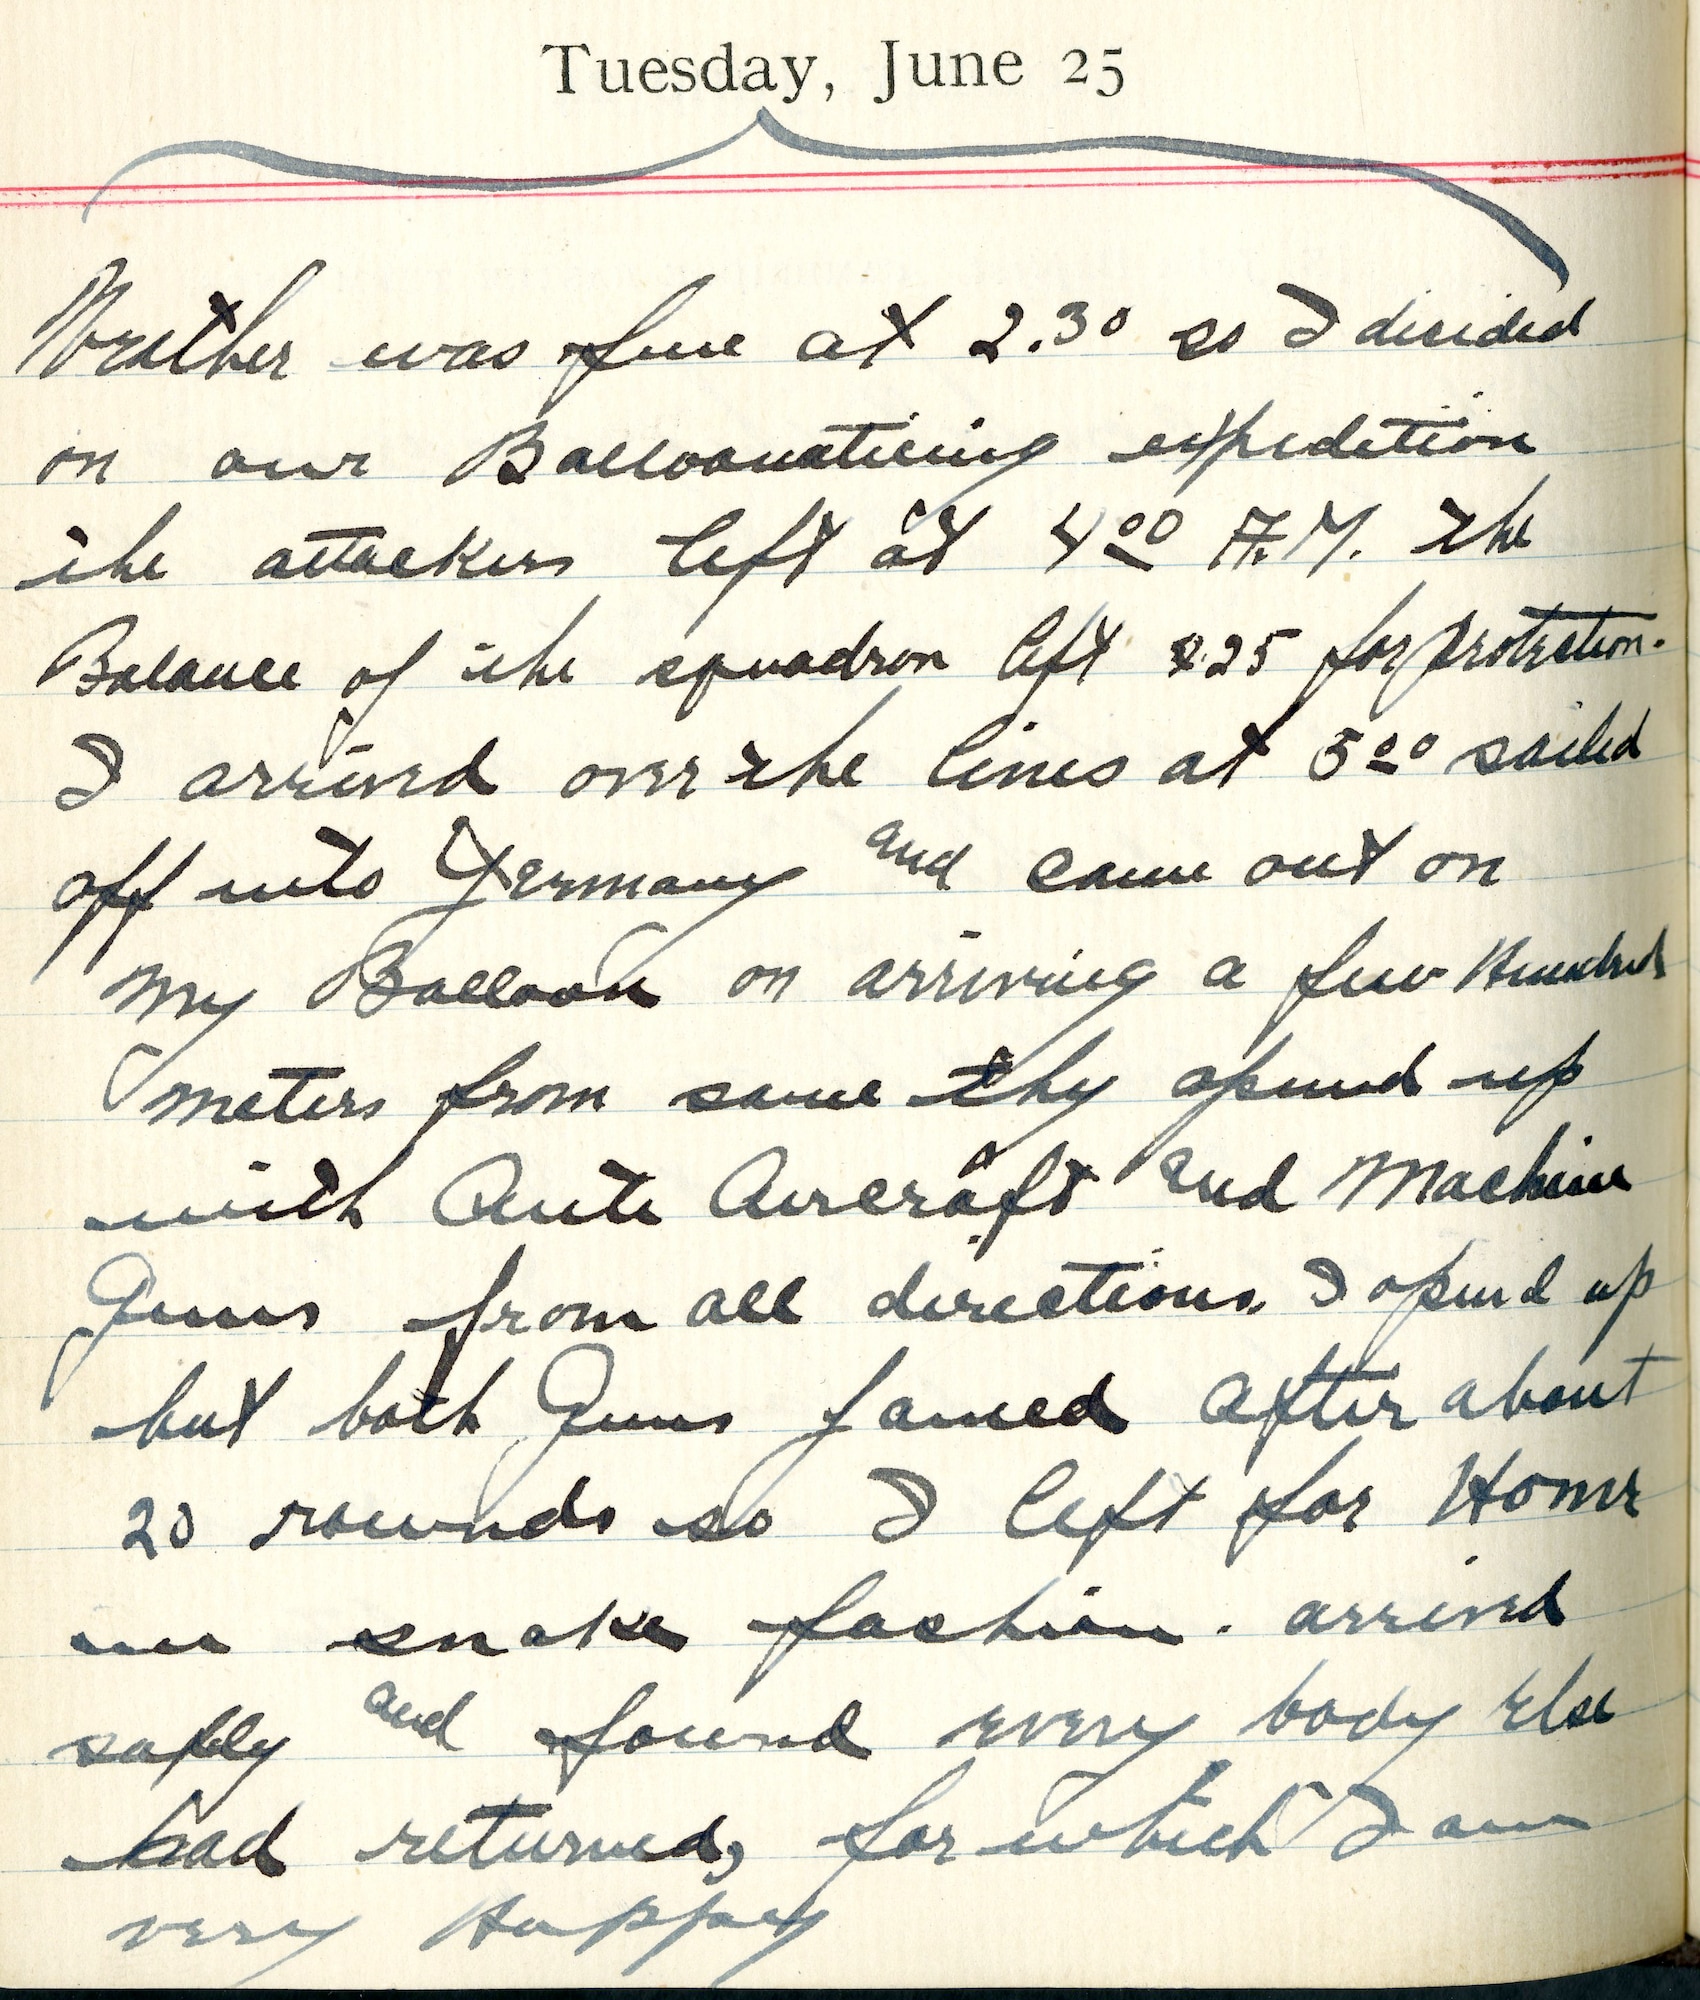 Tuesday, June 25
Weather was fine at 2.30 so I decided
on our Balloonaticing expedition
the attackers left at 4 00 A.M. the
Balance of the squadron left 25 for protection.
I arrived over the lines at 5 00 sailed
off into Germany and came out on
my Balloon on arriving a few Hundred
meters from same they opened up
with Anti Aircraft and Machine
Guns from all directions. I opened up
but both Guns Jamed after about
20 rounds so I left for Home
in snake fashion. arrived
safely and found every body Else
had returned, for which I am
very Happy